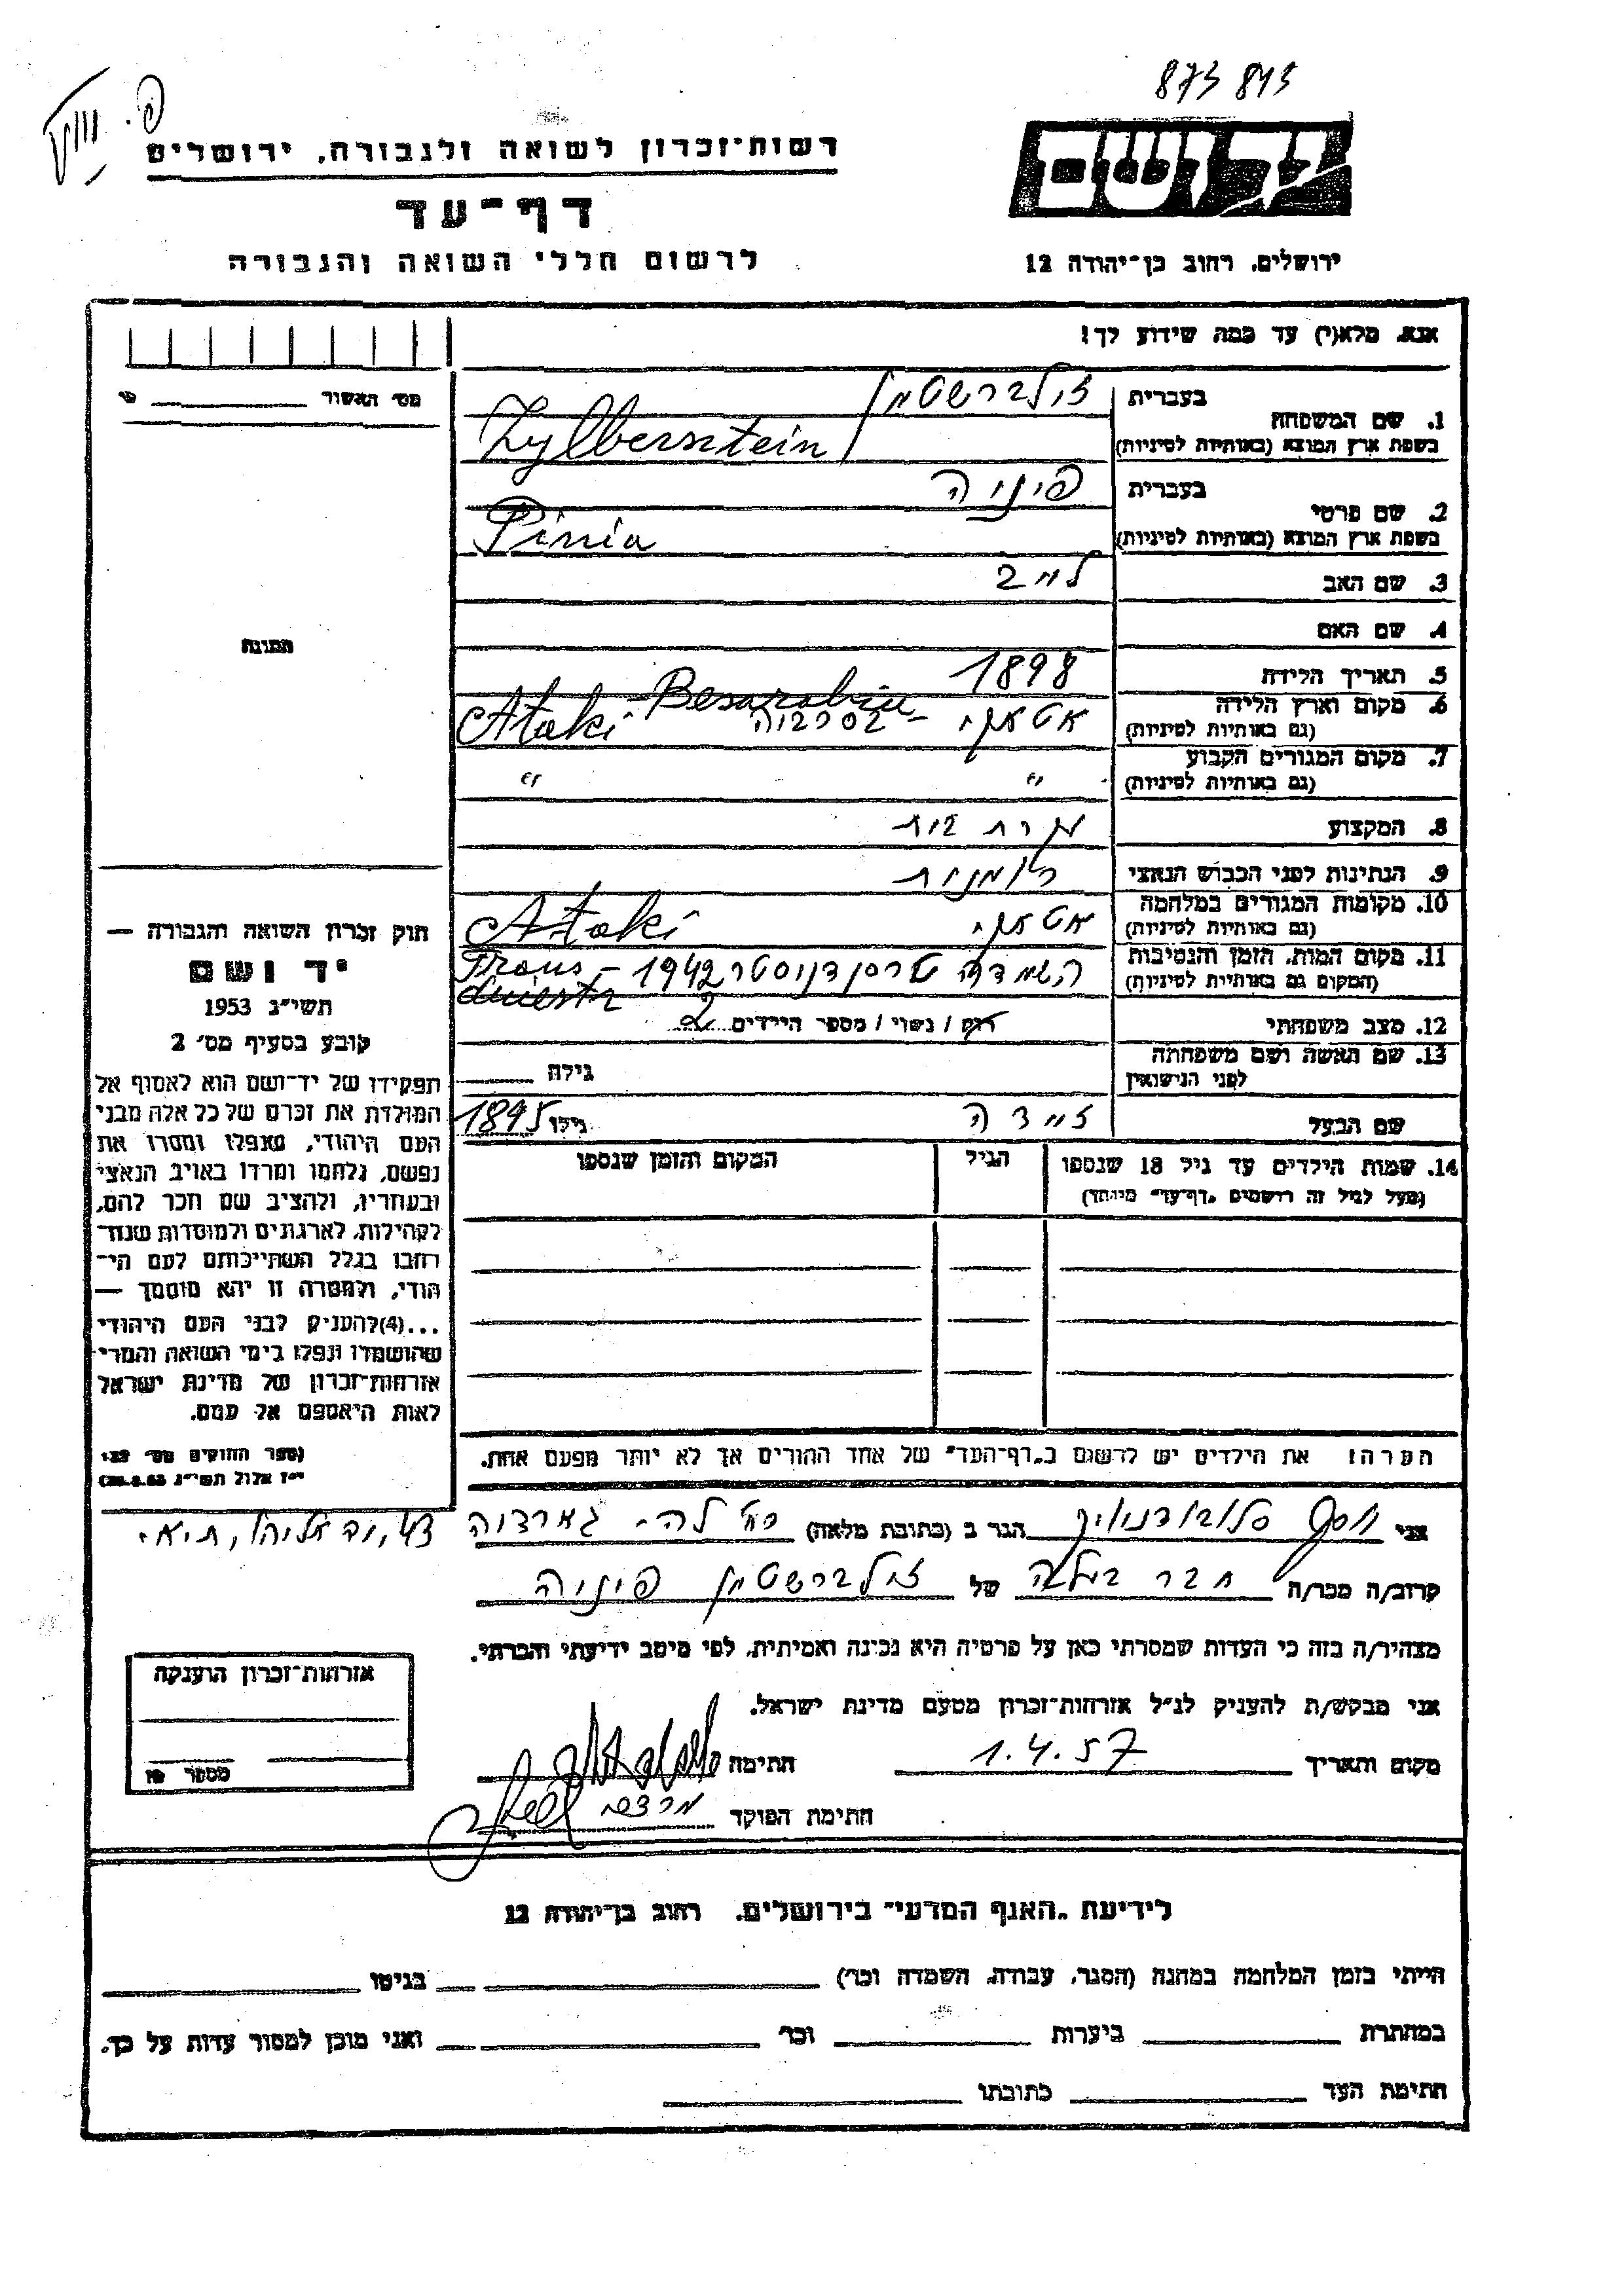 873 843
רשות־זכרון לשואה ולגבורה, ירושלים
דף־עד
לרשום חללי השואה והגבורה
יד ושם
ירושלים, רחוב בן־יהודה 12
אנא, מלא(י) עד כמה שידוע לך!
מס׳ האשור
1. שם המשפחה
בעברית זילברשטין
בשפת ארץ המוצא (באותיות לטיניות) Zylbersztein
2. שם פרטי
בעברית פיניה
בשפת ארץ המוצא (באותיות לטיניות) Pinia
3. שם האב לייב
4. שם האם
5. תאריך הלידה 1898
6. מקום וארץ הלידה אטאקי - בסרביה Ataki - Besarabia
(גם באותיות לטיניות)
7. מקום המגורים הקבוע
(גם באותיות לטיניות) " "
8. המקצוע עקרת בית
9. הנתינות לפני הכבוש הנאצי רומנית
10. מקומות המגורים במלחמה אטאקי Ataki
(גם באותיות לטיניות)
11. מקום המות, הזמן והנסיבות השמדה טרסנדניסטר 1942 - Transdniestr
(המקום גם באותיות לטיניות)
12. מצב משפחתי רוק / נשוי / מספר הילדים 2
13. שם האשה ושם משפחתה
לפני הנישואין גילה
שם הבעל זיידה גילו 1895
14. שמות הילדים עד גיל 18 שנספו הגיל המקום והזמן שנספו
(מעל לגיל זה רושמים "דף־עד" מיוחד)
הערה! את הילדים יש לרשום ב"דף־העד" של אחד ההורים אך לא יותר מפעם אחת.
תמונה
חוק זכרון השואה והגבורה —
יד ושם
תשי״ג 1953
קובע בסעיף מס׳ 2
תפקידו של יד־ושם הוא לאסוף אל
המולדת את זכרם של כל אלה מבני
העם היהודי, שנפלו ומסרו את
נפשם, נלחמו ומרדו באויב הנאצי
ובעוזריו, ולהציב שם וזכר להם,
לקהילות, לארגונים ולמוסדות שנח־
רבו בגלל השתייכותם לעם הי־
הודי, ולמטרה זו יהא מוסמך —
...(4)להעניק לבני העם היהודי
שהושמדו ונפלו בימי השואה והמרי
אזרחות־זכרון של מדינת ישראל
לאות היאספם אל עמם.
(ספר החוקים מס׳ 132
י״ז אלול תשי״ג 28.8.53)
אני יוסף הגר ב (כתובת מלאה) 43, יד אליהו, ת״א.
קרוב/ה מכר/ה של זילברשטין פיניה
מצהיר/ה בזה כי העדות שמסרתי כאן על פרטיה היא נכונה ואמיתית, לפי מיטב ידיעתי והכרתי.
אני מבקש/ת להעניק לנ״ל אזרחות־זכרון מטעם מדינת ישראל.
מקום ותאריך 1.4.57 חתימה
חתימת הפוקד
אזרחות־זכרון הוענקה
מספר
לידיעת "האגף המדעי" בירושלים, רחוב בן־יהודה 12
הייתי בזמן המלחמה במחנה (הסגר, עבודה, השמדה וכו׳) בגיטו
במחתרת ביערות וכו׳ ואני מוכן למסור עדות על כך.
חתימת העד כתובתו